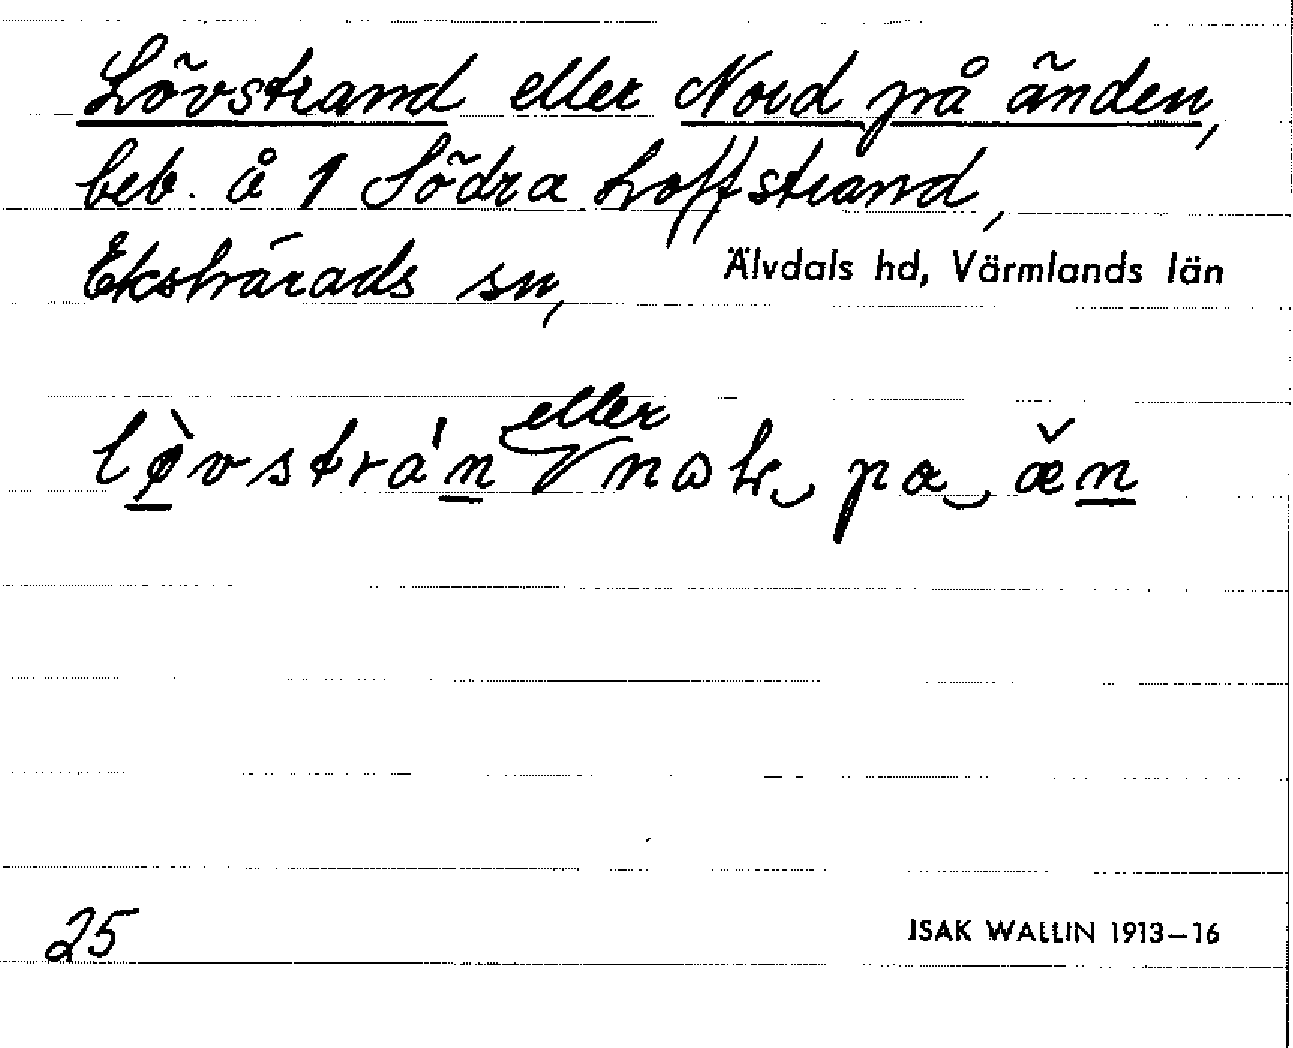 Lövstrand eller Nord på änden,
beb. å 1 Södra Loffstrand,
Ekshärads sn, Älvdals hd, Värmlands län
eller
25
ISAK WALLIN 1913–16